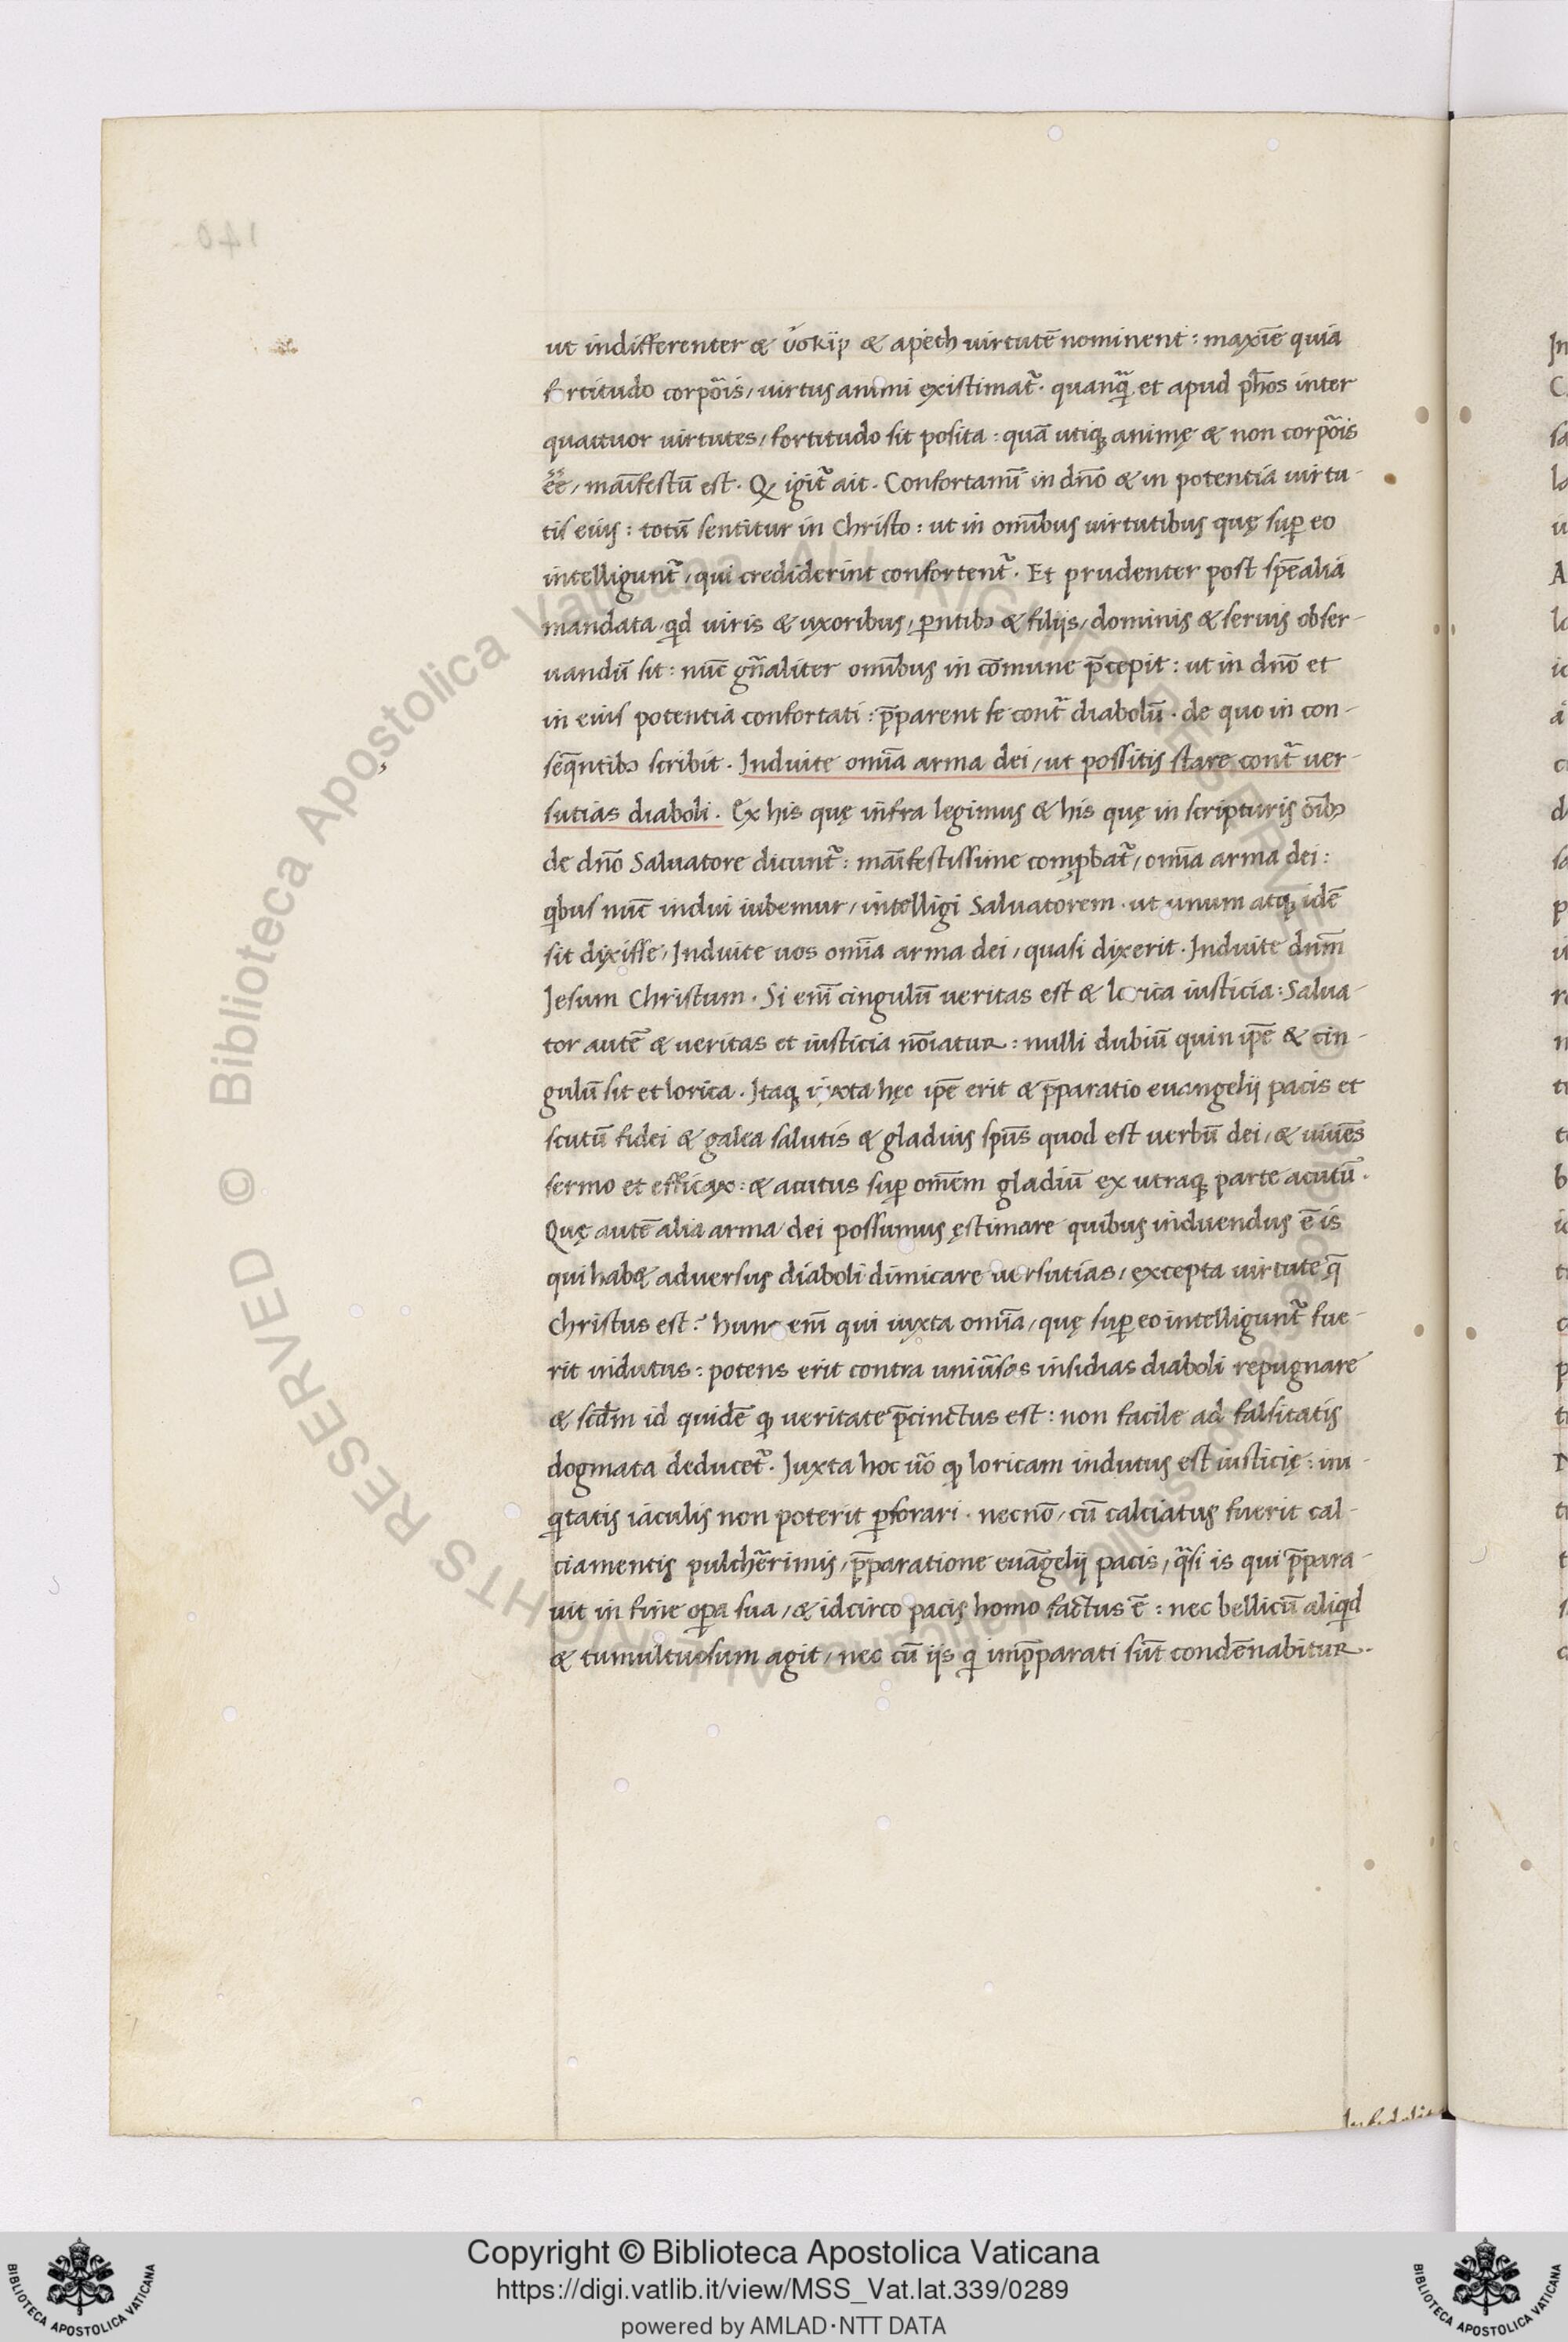 ut indifferenter & ὑσκὶρ & apeth uirtutē nominent : maxīe quia
fortitudo corpo͛is / uirtus animi existimat͛. quanq̃ et apud ph̄os inter
quattuor uirtutes / fortitudo sit posita : quā utiq; animę & non corpo͛is
ēē / māifestū est . Q igit͛ ait . Confortamī in dn̄o & in potentia uirtu-
tis eius : totū sentitur in Christo : ut in omībus uirtutibus quę suꝑ eo
intelligunt͛ / qui crediderint confortent͛ . Et prudenter post spēalia
mandata / qd uiris & uxoribus / ꝑntibꝫ & filijs / dominis & seruis obser-
uandū sit : nūc gn̄aliter omībus in cōmune p̄cepit : ut in dn̄o et
in eius potentia confortati : p̄parent se cont͛ diabolū . de quo in con-
seq̄ntibꝫ scribit . Induite omīa arma dei / ut possitis stare cont͛ uer-
sutias diaboli . Ex his quę infra legimus & his quę in scripturis oībꝫ
de dn̄o Saluatore dicunt͛ : māifestissime comꝓbat͛ / omīa arma dei :
qbus nūc indui iubemur / intelligi Saluatorem . ut unum atq; idē
sit dixisse / Induite uos omīa arma dei / quasi dixerit . Induite dnm̄
Jesum Christum . Si enī cingulū ueritas est & lorica iusticia : Salua-
tor autē & ueritas et iusticia nōiatur : nulli dubiū quin ip̄e & cin-
gulū sit et lorica . Itaq; iuxta hęc ip̄e erit & p̄paratio euangelij pacis et
scutū fidei & galea salutis & gladius spūs quod est uerbū dei / & uiuēs
sermo et efficax : & acutus suꝑ om̄em gladiū ex utraq; parte acutū .
Quę autē alia arma dei possumus ęstimare quibus induendus ē is
qui hab& aduersus diaboli dimicare uersutias / excepta uirtute q̄
Christus est ? hunc enī qui iuxta omīa / quę suꝑ eo intelligunt͛ fue-
rit indutus : potens erit contra uniu͛sas insidias diaboli repugnare
& scd̄m id quidē ꝙ ueritate p̄cinctus est : non facile ad falsitatis
dogmata deducet͛ . Juxta hoc uo͛ ꝙ loricam indutus est iusticię : ini-
qtatis iaculis non poterit ꝑforari . necnō / cū calciatus fuerit cal-
ciamentis pulche͛rimis / p̄paratione euāgelij pacis / q̃si is qui p̄para-
uit in fine oꝑa sua / & idcirco pacis homo factus ē : nec bellicū aliqd
& tumultuosum agit / nec cū ijs q imp̄parati sūt condēnabitur .
140
Copyright © Biblioteca Apostolica Vaticana
https://digi.vatlib.it/view/MSS_Vat.lat.339/0289
powered by AMLAD·NTT DATA
BIBLIOTECA APOSTOLICA VATICANA
BIBLIOTECA APOSTOLICA VATICANA
© Biblioteca Apostolica Vaticana ALL RIGHTS RESERVED